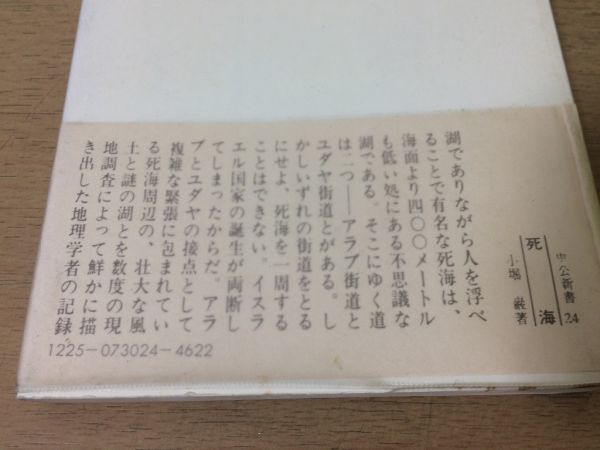 中公新書 24
死海
小堀 巌著
湖でありながら人を浮べ
ることで有名な死海は、
海面より四〇〇メートル
も低い処にある不思議な
湖である。そこにゆく道
は二つ――アラブ街道と
ユダヤ街道とがある。し
かしいずれの街道をとる
にせよ、死海を一周する
ことはできない。イスラ
エル国家の誕生が両断し
てしまったからだ。アラ
ブとユダヤの接点として
複雑な緊張に包まれてい
る死海周辺の、壮大な風
土と謎の湖とを数度の現
地調査によって鮮かに描
き出した地理学者の記録
1225-073024-4622